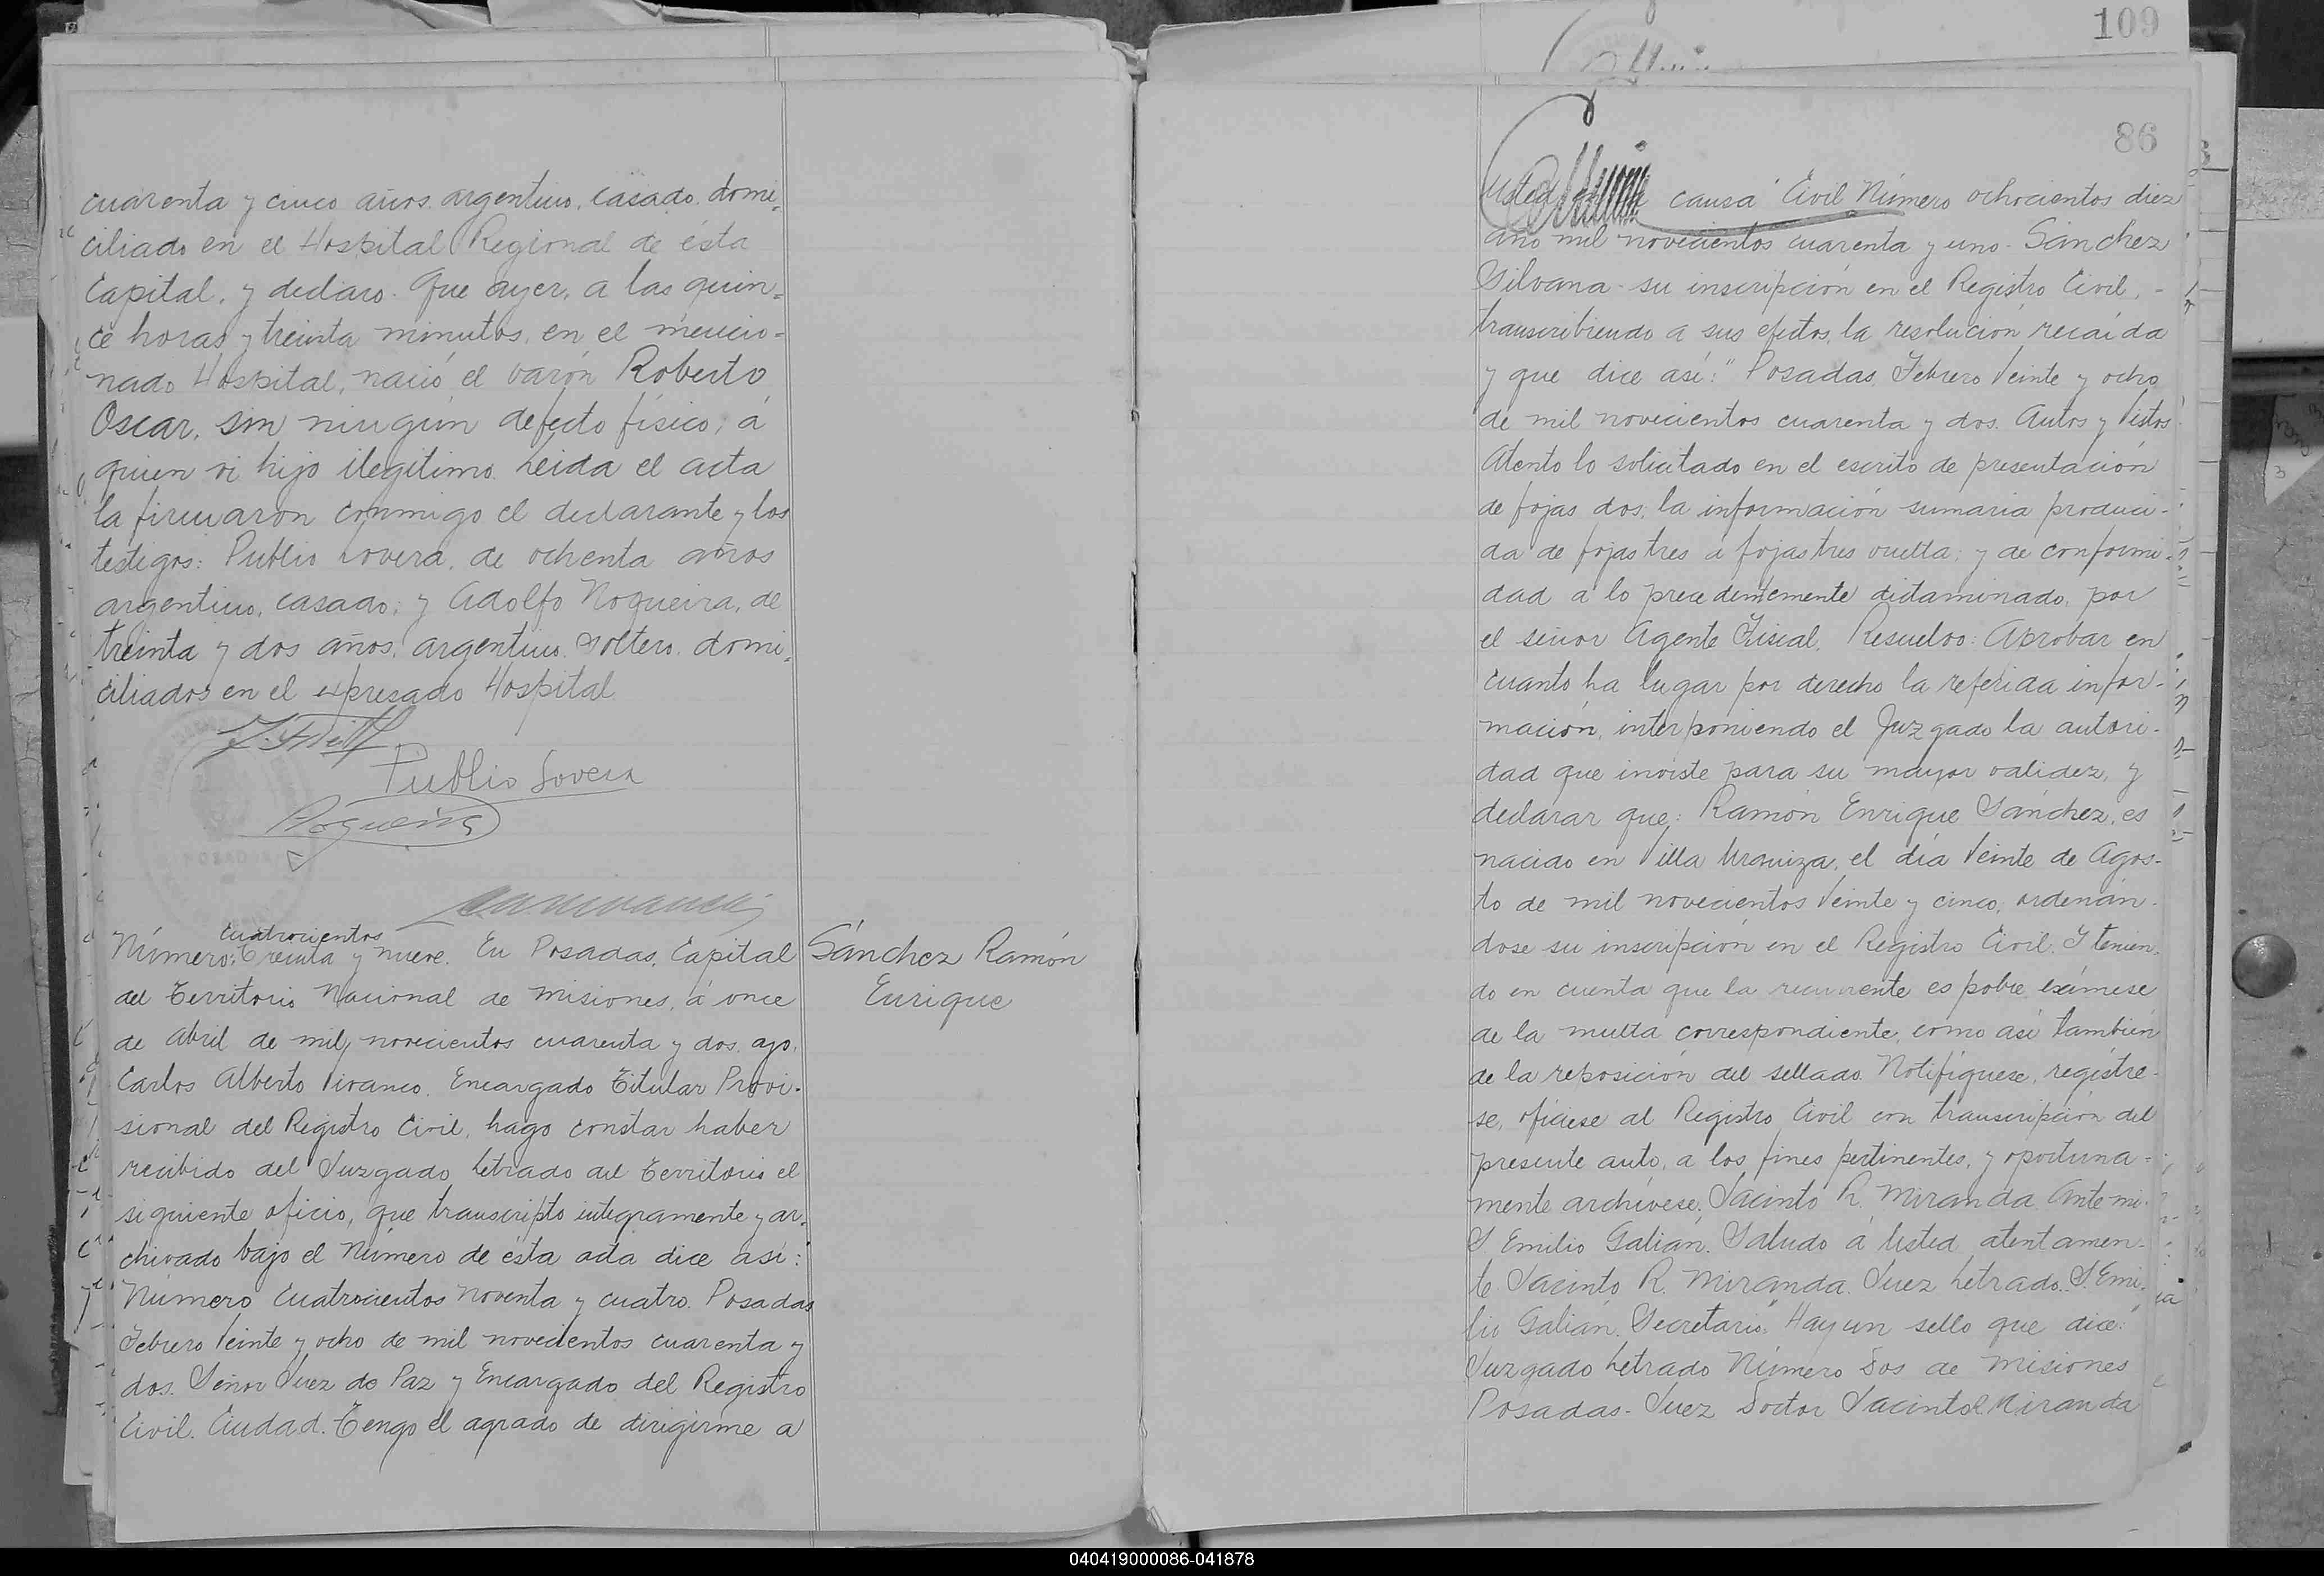 cuarenta y cinco años, argentino, casado, domi-
ciliado en el Hospital Regional de ésta
Capital, y declaro: Que ayer, a las quin-
ce horas y treinta minutos, en el mencio-
nado Hospital, nació el varón Roberto
Oscar, sin ningún defecto físico; á
quien vi hijo ilegítimo. Leida el acta
la firmaron conmigo el declarante y los
testigos: Publio Lovera, de ochenta años
argentino, casado; y Adolfo Nogueira, de
treinta y dos años, argentino, soltero, domi-
ciliados en el expresado Hospital
Publio Lovera
Nogueira
POSADAS
cuatrocientos
Número: Treinta y nueve. En Posadas, Capital
del Territorio Nacional de Misiones, á once
de Abril de mil novecientos cuarenta y dos, yo,
Carlos Alberto Vivanco, Encargado Titular Provi-
sional del Registro Civil, hago constar haber
recibido del Juzgado Letrado del Territorio el
siguiente oficio, que transcripto integramente y ar-
chivado bajo el Número de ésta acta dice así:
"Número Cuatrocientos Noventa y cuatro. Posadas
Febrero Veinte y ocho de mil novecientos cuarenta y
dos. Señor Juez de Paz y Encargado del Registro
Civil. Ciudad. Tengo el agrado de dirigirme a
Sánchez Ramón
Enrique
109
86
Usted causa "Civil Número ochocientos diez
año mil novecientos cuarenta y uno - Sánchez
Silvana - su inscripción en el Registro Civil, -
transcribiendo a sus efectos, la resolución recaída
y que dice así: "Posadas, Febrero Veinte y ocho
de mil novecientos cuarenta y dos. Autos y Vistos:
Atento lo solicitado en el escrito de presentación
de fojas dos, la información sumaria produci-
da de fojas tres a fojas tres vuelta; y de conformi-
dad a lo precedentemente dictaminado, por
el señor Agente Fiscal, Resuelvo: Aprobar en
cuanto ha lugar por derecho la referida infor-
mación, interponiendo el Juzgado la autori-
dad que inviste para su mayor validez, y
declarar que: Ramón Enrique Sánchez, es
nacido en Villa Urquiza, el día Veinte de Agos-
to de mil novecientos Veinte y cinco, ordenán-
dose su inscripción en el Registro Civil. Y tenien-
do en cuenta que la recurrente es pobre exímese
de la multa correspondiente, como así también
de la reposición del sellado. Notifíquese, regístre-
se, ofíciese al Registro Civil con transcripción del
presente auto, a los fines pertinentes, y oportuna-
mente archívese. Jacinto R. Miranda. Ante mi:
S. Emilio Galián. Saludo á Usted atentamen-
te Jacinto R. Miranda. Juez Letrado. S. Emi-
lio Galián. Secretario." Hay un sello que dice:"
Juzgado Letrado Número Dos de Misiones
Posadas - Juez Doctor Jacinto R Miranda
040419000086-041878